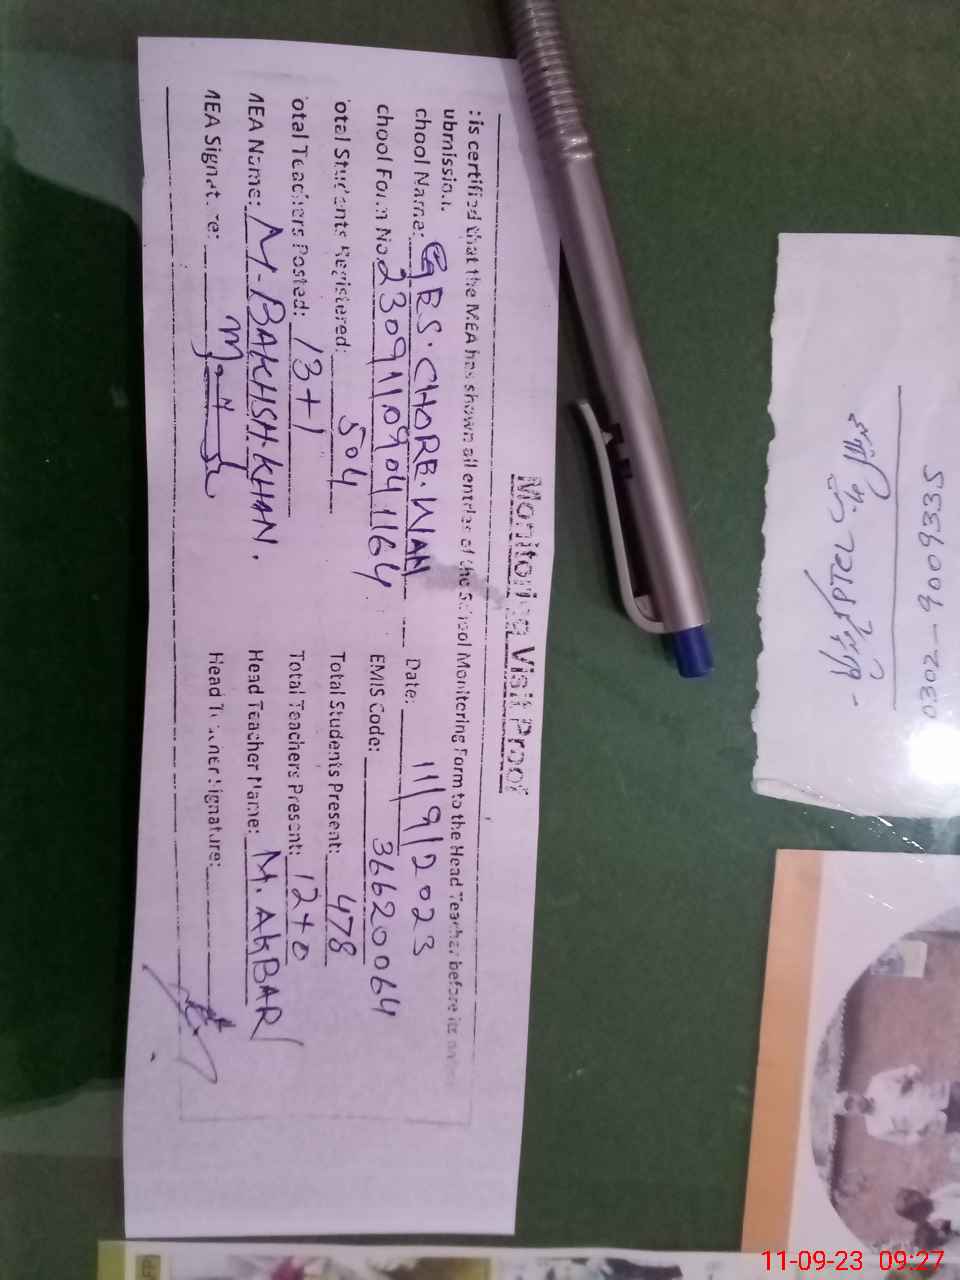 Monitoring Visit Proof
: is certified that the MEA has shown all entries of the School Monitoring Form to the Head Teacher before its
ubmission.
chool Name: GES. CHORE. WAH Date: 11/9/2023
chool Form No. 23091109041164 EMIS Code: 36620064
otal Students Registered: 504 Total Students Present: 478
otal Teachers Posted: 13+1 Total Teachers Present: 12+0
MEA Name: M. BAKHSH. KHAN. Head Teacher Name: M. AKBAR
MEA Signature: Head Teacher Signature:
0302-6009335
11-09-23 09:27